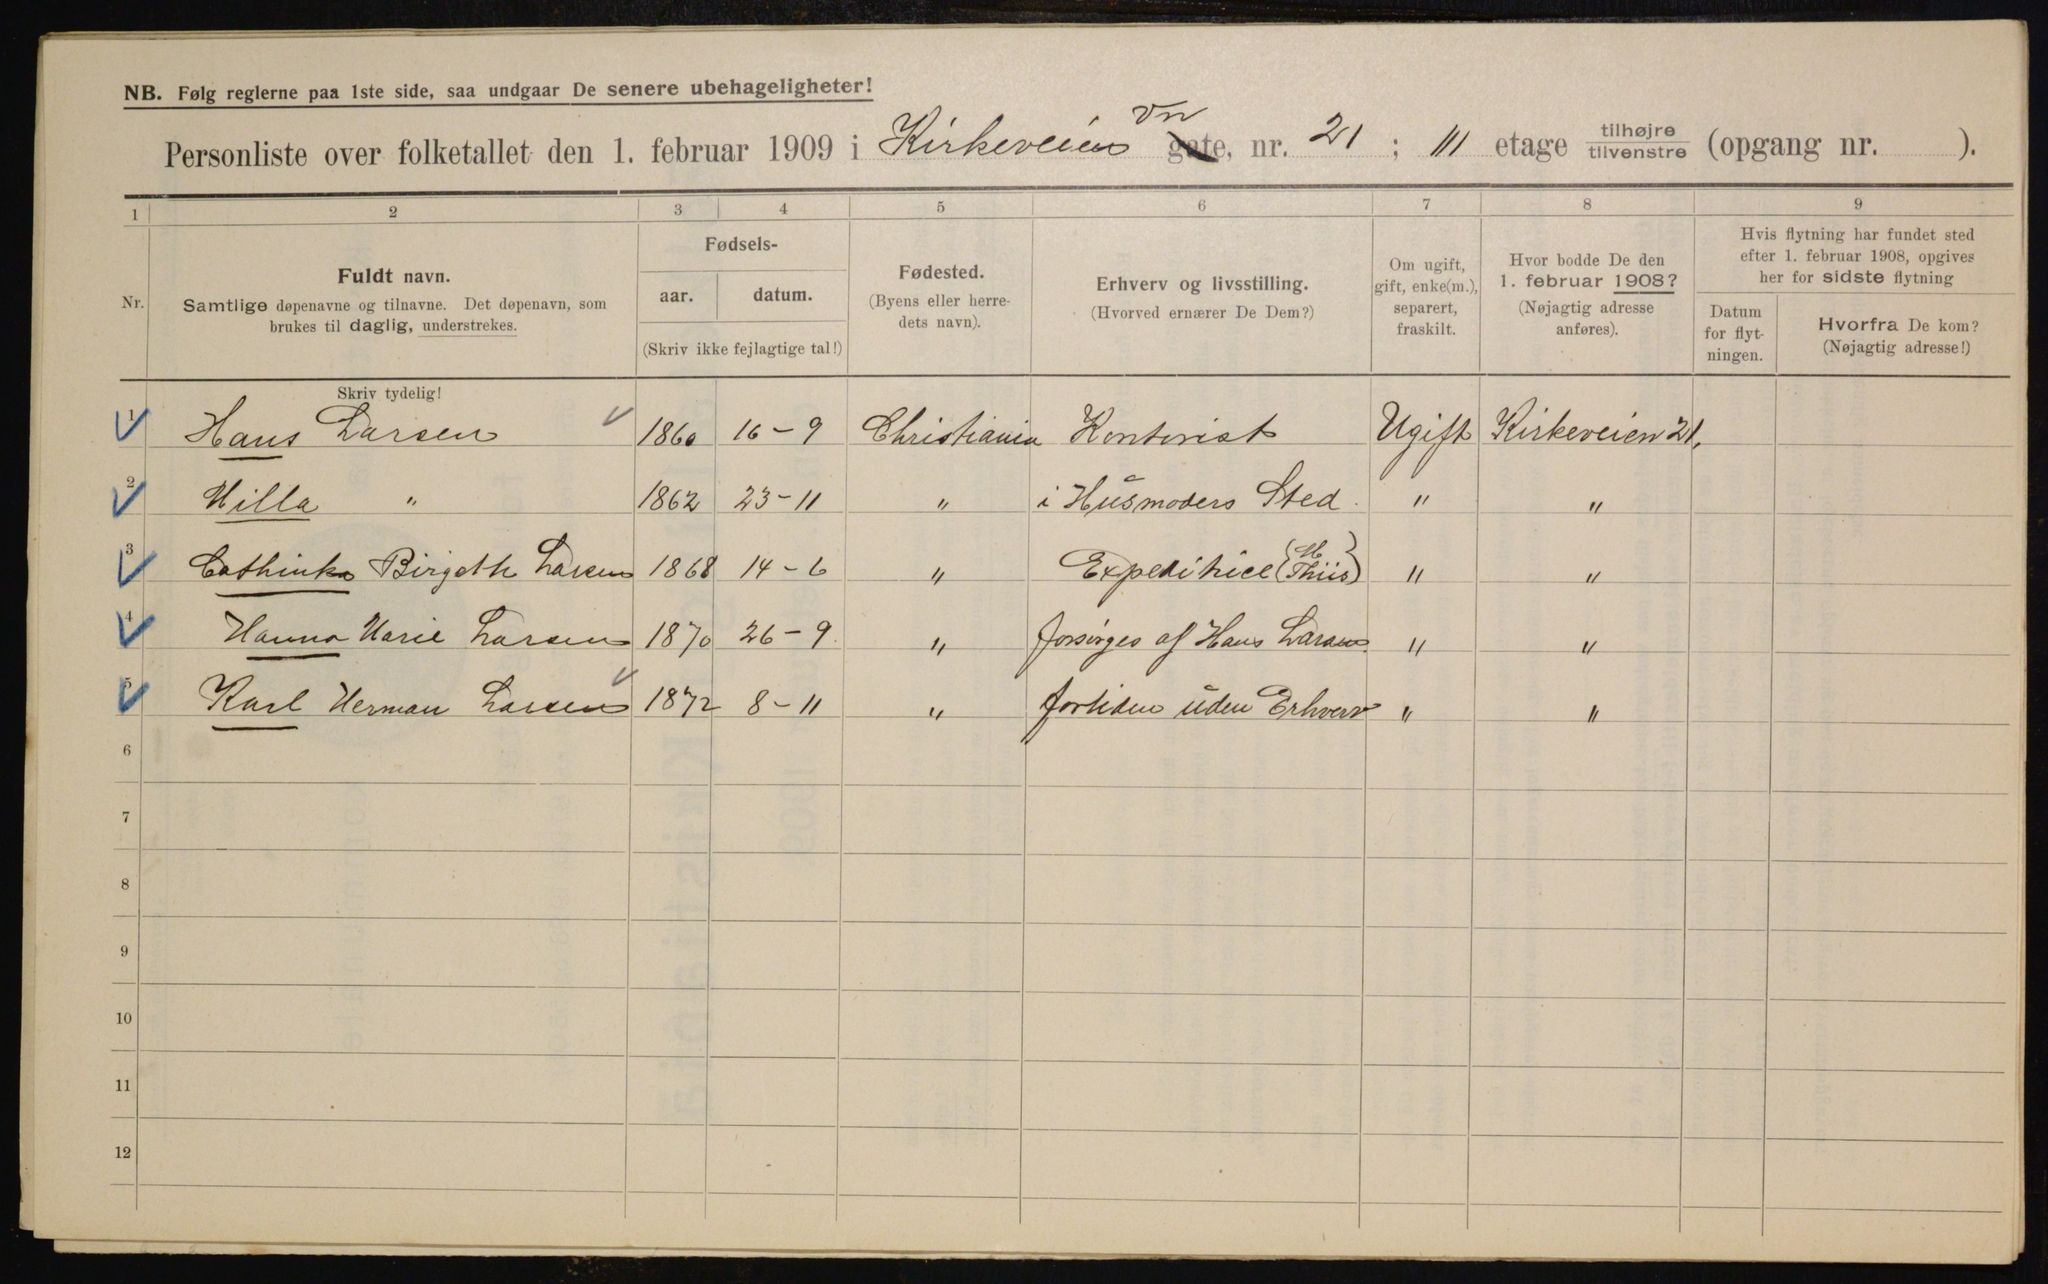 NB. Følg reglerne paa 1ste side, saa undgaar De senere ubehageligheter!
Personliste over folketallet den 1. februar 1909 i Kirkeveien vn gate, nr. 21 ; III etage tilhøjre tilvenstre (opgang nr. ).
1 2 3 4 5 6 7 8 9
Nr.
Fuldt navn.
Samtlige døpenavne og tilnavne. Det døpenavn, som
brukes til daglig, understrekes.
Fødsels-
aar. datum.
(Skriv ikke fejlagtige tal!)
Fødested.
(Byens eller herre-
dets navn).
Erhverv og livsstilling.
(Hvorved ernærer De Dem?)
Om ugift,
gift, enke(m.),
separert,
fraskilt.
Hvor bodde De den
1. februar 1908?
(Nøjagtig adresse
anføres).
Hvis flytning har fundet sted
efter 1. februar 1908, opgives
her for sidste flytning
Datum
for flyt-
ningen.
Hvorfra De kom?
(Nøjagtig adresse!)
Skriv tydelig!
1 Hans Larsen 1860 16-9 Christiania Kontorist Ugift Kirkeveien 21,
2 Milla " 1862 23-11 " i Husmoders Sted. " "
3 Cathinka Birgeth Larsen 1868 14-6 " Expeditrice (M Thiis) " "
4 Hanna Marie Larsen 1870 26-9. " forsørges af Hans Larsen " "
5 Karl Herman Larsen 1872 8-11 " fortiden uden Erhverv " "
6
7
8
9
10
11
12